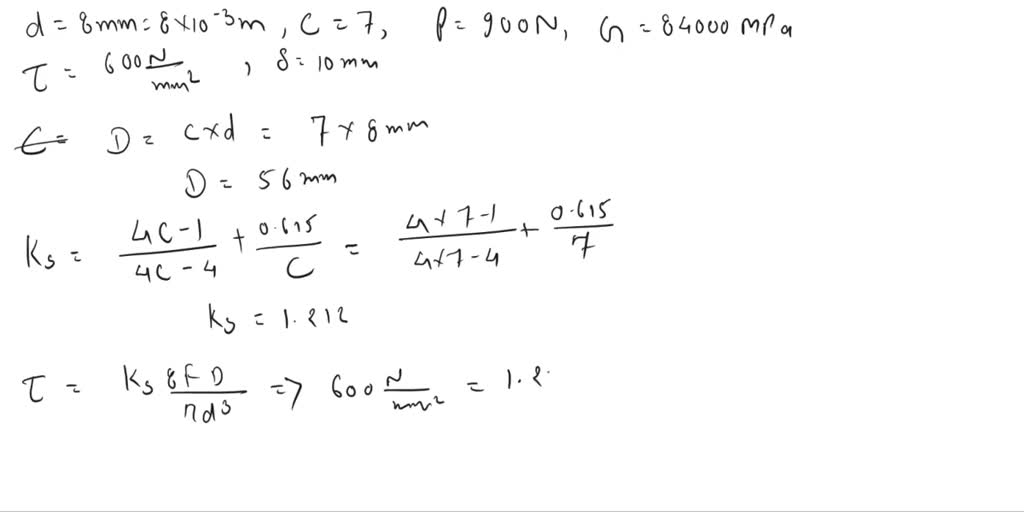 d = 8mm = 8×10⁻³m , C = 7, P = 900N, G = 84000 MPa
τ = 600 N/mm² , δ = 10 mm
C= D = c×d = 7 × 8mm
D = 56mm
Ks = (4C-1)/(4C-4) + 0.615/C = (4×7-1)/(4×7-4) + 0.615/7
Ks = 1.212
τ = Ks 8FD/πd³ => 600 N/mm² = 1.2